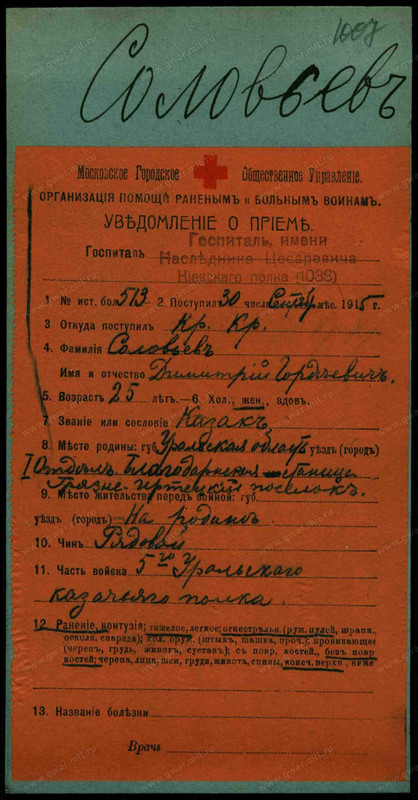 1007
Соловьевъ
Московское Городское Общественное Управленіе.
ОРГАНИЗАЦІЯ ПОМОЩИ РАНЕНЫМЪ и БОЛЬНЫМЪ ВОИНАМЪ.
УВѢДОМЛЕНІЕ О ПРІЕМѢ.
Госпиталь Госпиталь, имени
Наслѣдника Цесаревича
Кіевскаго полка (1038)
1 № ист. бол. 513 2. Поступил 30 числа Сентяб мѣс. 1915 г.
3 Откуда поступил Кр. Кр.
4. Фамилія Соловьевъ
Имя и отчество Димитрій Гордѣевичъ.
5. Возраст 25 лѣтъ.—6. Хол., жен., вдов.
7. Званіе или сословіе Казакъ
8. Мѣсто родины: губ. Уральская область уѣзд (город)
I Отдѣлъ Благодарненская станица
Грязно-Иртецкій поселокъ.
9. Мѣсто жительства передъ войной: губ.
уѣзд (город) На родинѣ.
10. Чин Рядовой
11. Часть войска 5го Уральскаго
казачьяго полка.
12. Раненіе, контузія; тяжелое, легкое; огнестрѣльн. (руж. пулей, шрапн.,
осколк. снаряда); хол. оруж. (штык, шашка, проч.); проникающее
(череп, грудь, живот, сустав); съ повр. костей, без повр
костей; черепа, лица, шеи, груди, живота, спины, конеч. верхн., ниже
13. Названіе болѣзни
Врачъ
www.gwar.mil.ru